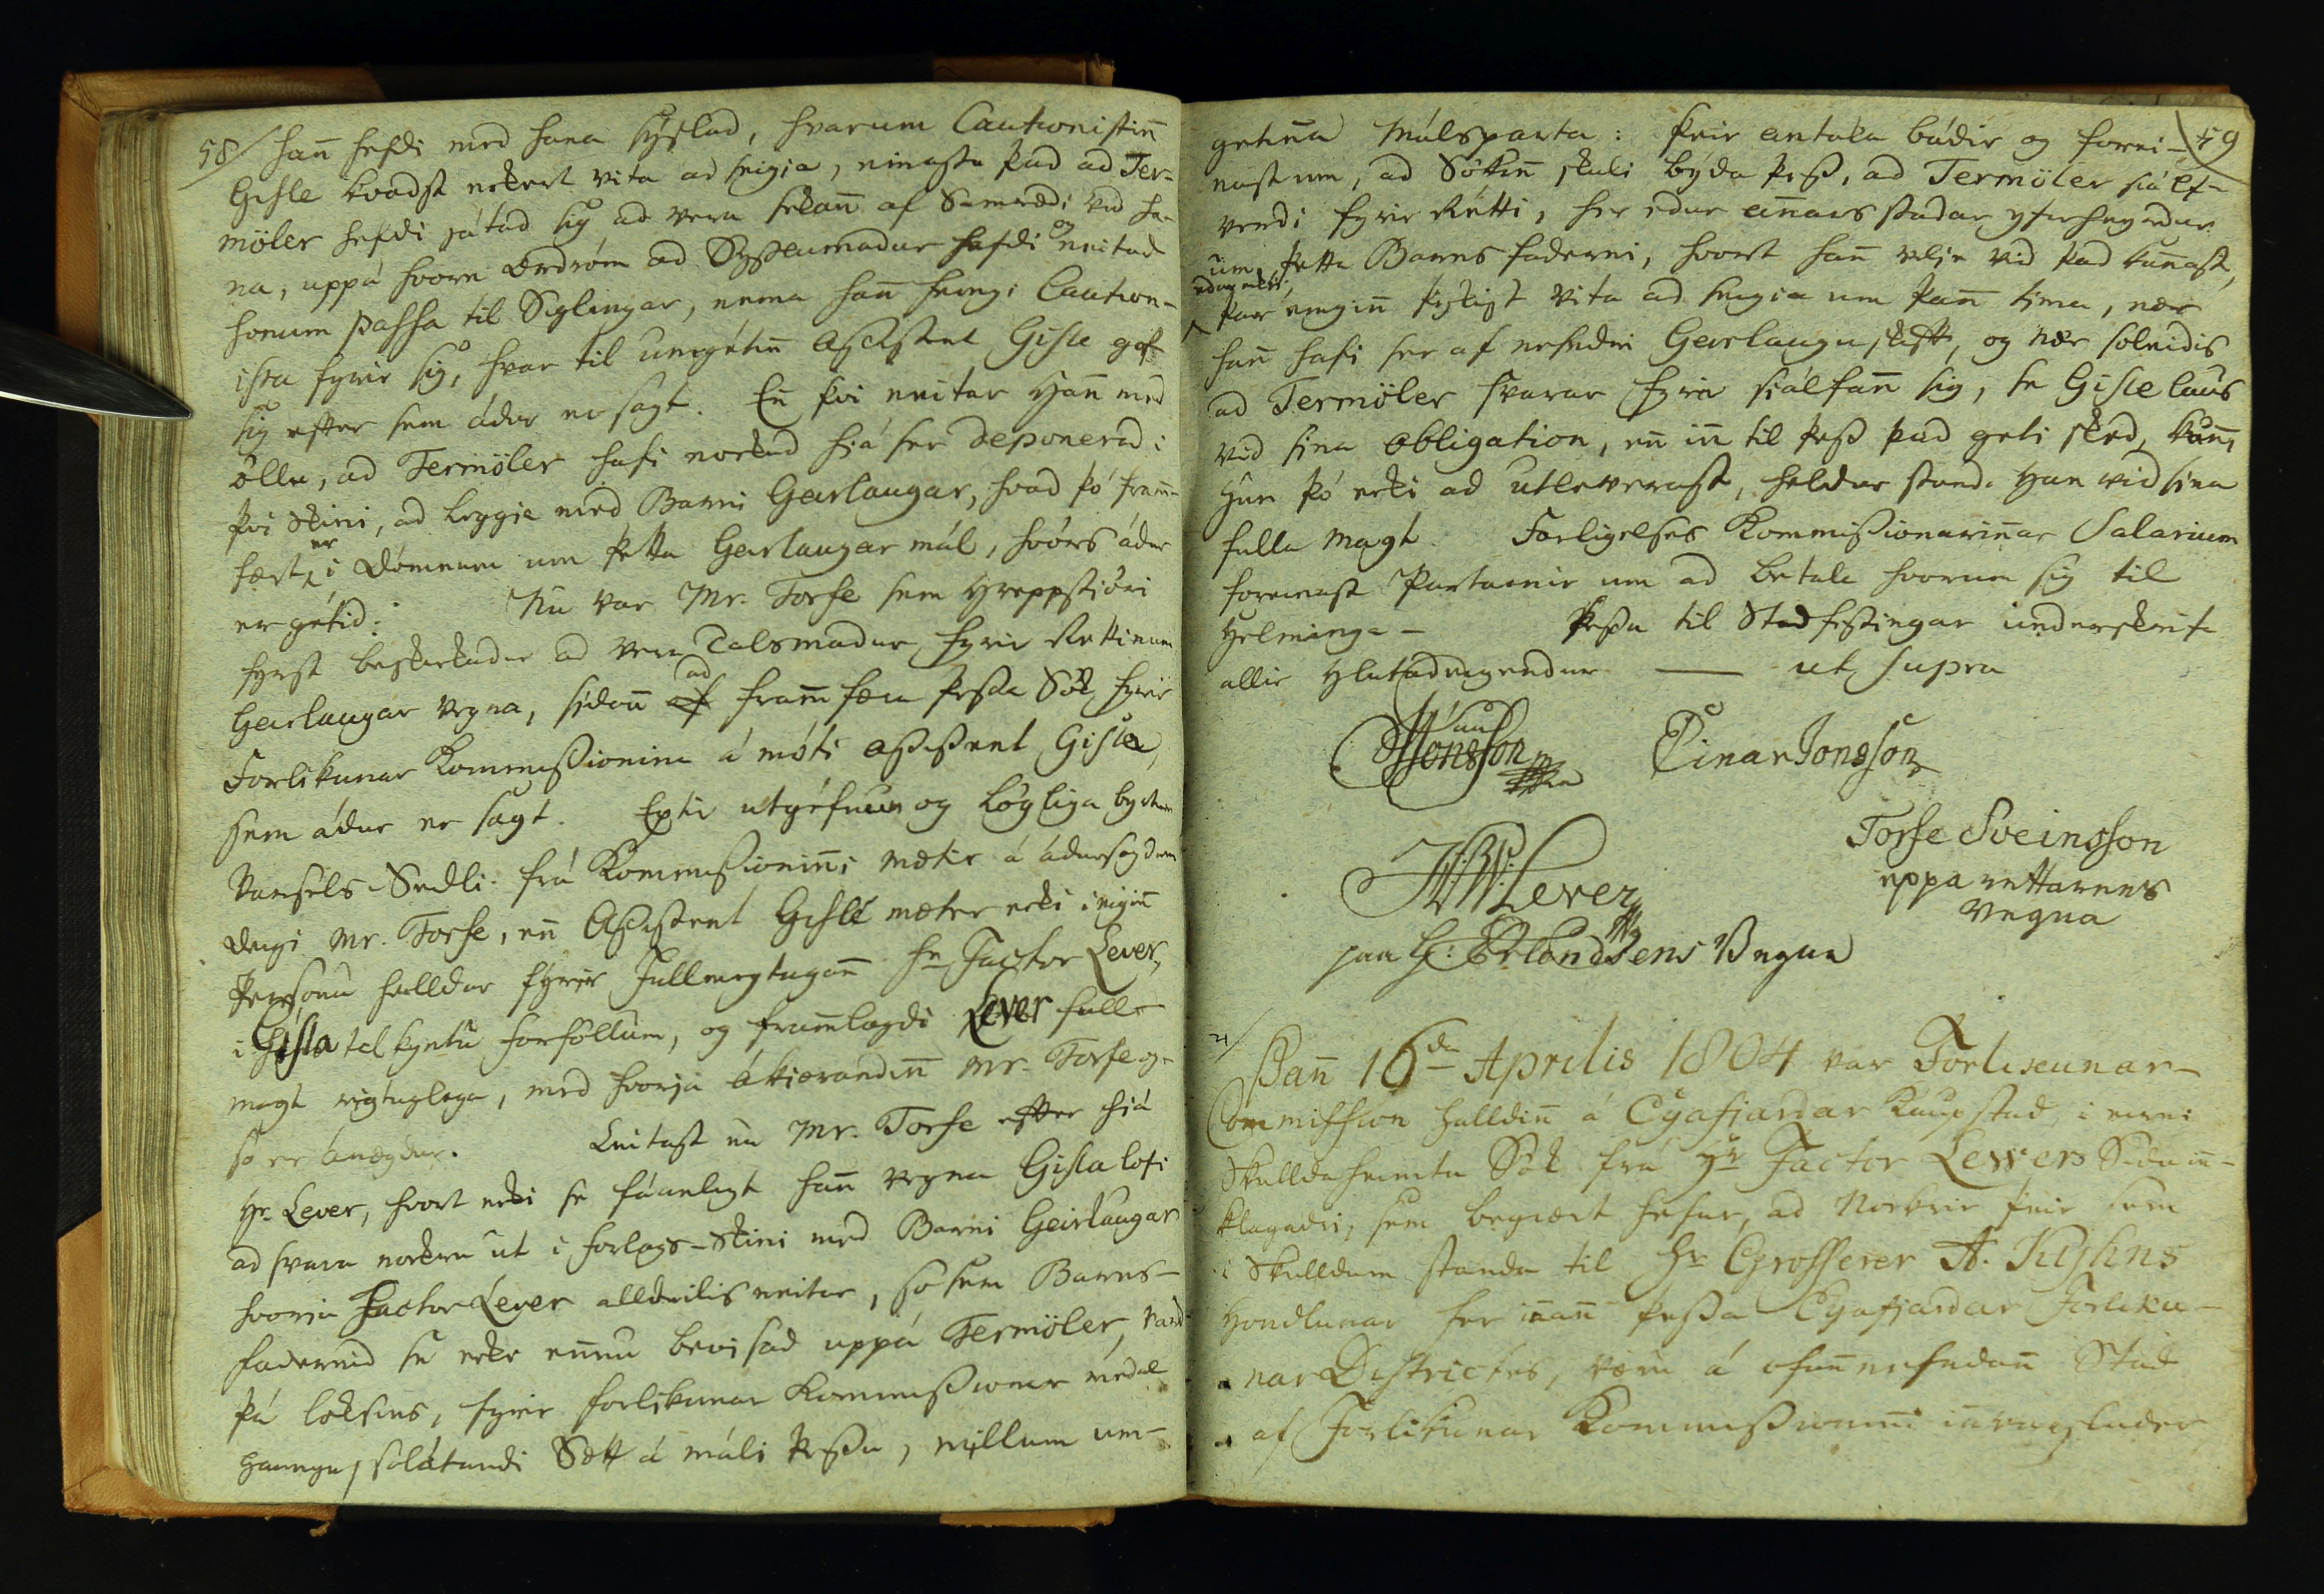 58/ hañ hefdi med hana sýslad, hvarum Cautionistiñ
Gisle kvadst eckert vita ad seigia, einasta þad ad Ter-
möler hefdi játad sig ad vera sekañ af Samrædi vid ha-
na, uppá hvorn Ordróm ad Sysselumadur hafdi og neitad
honum Passa til Siglingar, nema hañ feingi Caution-
ista fyrir sig, hvar til umgétiñ Assistent Gisle gaf
sig efter sem ádur er sagt. Eñ þvi neitar Hañ med
öllu, ad Termöler hafi nockud hiá ser deponerad i
þvi Skini, ad leggia med Barni Geirlaugar, hvad þó fram-
fært er i Dómnum um þetta Geirlaugar mál, hvórs ádur
er gétid. Nu var Mr. Torfe sem Hreppstióri
fyrst beskickadur ad vera Talsmadur fyrir Rettinum
Geirlaugar vegna, sidañ ad framfæra þessa Sök fyrir
Forlikunar Kommissionina á móti Assistent Gisla,
sem ádur er sagt. Eptir utgéfnum og lögliga byrtum
Varsels-Sedli frá Kommissioniñi mætir á ádursögdum
Deigi Mr. Torfe, eñ Assistent Gisle mæter ecki i eigiñ
Persónu helldur fyrir Fullmegtugañ Hr Factor Lever,
i Gisla tilkyntu Forföllum, og framlagdi Lever full-
magt rigtuglega, med hvorju ákiærandiñ Mr. Torfe og
so er ánægdur. Leitast nu Mr. Torfe efter hiá
Hr Lever, hvort ecki se fáanlegt hañ vegna Gisla lofi
ad svara nockru út i forlags-Skini med Barni Geirlaugar
hvorju Factor Lever alldeilis neitar, so sem Barns-
faderned se ecki eñnu bevisad uppá Termöler, vard
þá loksins, fyrir forlikunar Kommissioner medal
ganngu, solátandi Sætt á máli þessu, millum um-
59
getinna Málsparta: Þeir antaka bádir og forei-
nast um, ad Sökiñ skuli býda þess, ad Termöler siálf-
verdi fyrir Rétti, her edur añarsstadar yferheyrdur
um þetta Barnsfaderni, hvort hañ vilje vid þad kannast,
edur ecki,
þar eingiñ þikist vita ad seigia um þañ tima, nær
hañ hafi her af nefndri Geirlaugu skeft, og nær soleidis
ad Termöler svarar fyrir siálfañ sig, se Gisle laus
vid sina Obligation, eñ iñ til þess þad geti sked, kañ
Hun þó ecki ad utleverast, heldur standi Hun vid sina
fulla Magt. Forligelses Kommissionariñar Salarium
foreinast Partarnir um ad betale hvorum sig til
Helminga- Þessu til Stadfestingar underskrifa
allir Hlutadeigendur — ut supra
Jonsson Einar Jonsson
Torfe Sveinsson
uppa rettarens
vegna
Lever
paa H: Erlandsens Vegne
2/
Þañ 16da Aprilis 1804 var Forlikunar-
Commission halldiñ á Eyafjardar Kaupstad i eirni
Skulldaheimtu Sök frá Hr Factor Lewers Siduiñ-
klagadri, sem begiært hefur, ad Nockrir þeir sem
i Skulldum standa til Hr Grosserer A. Kyhns
Hondlunar her iñañ þessa Eyafjardar Forliku-
nar Districtes, væru á ofañnefndañ Stad
af Forlikunar Kommissioniñi iñvarsladir